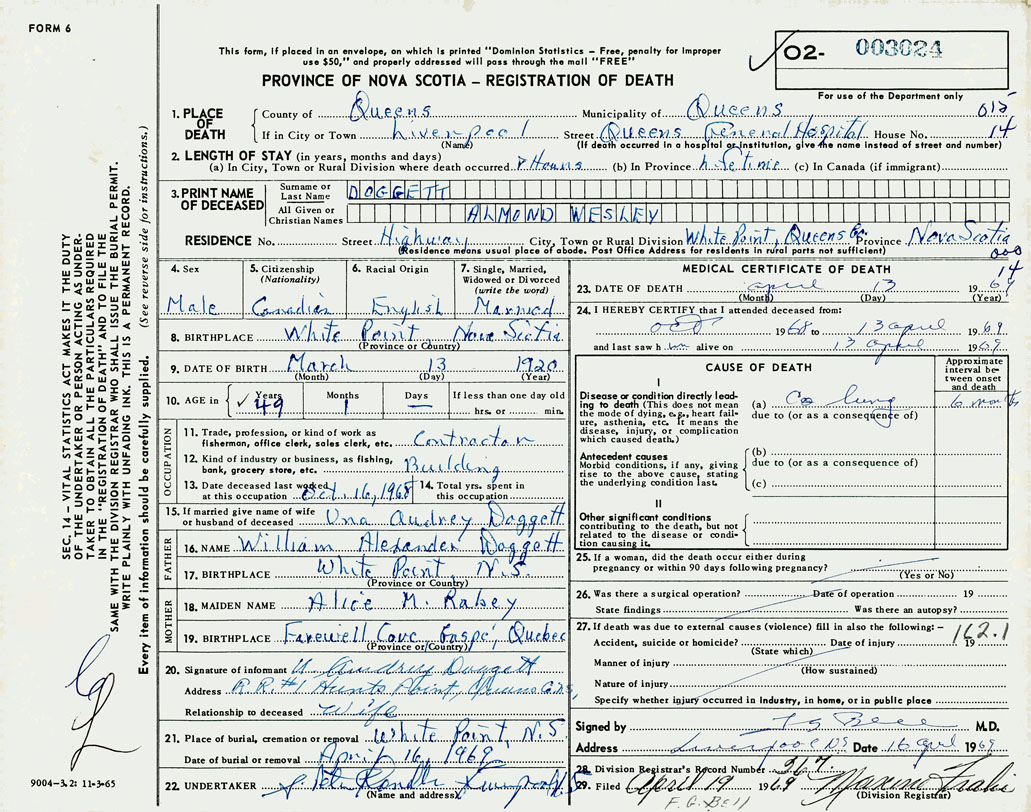 FORM 6
This form, if placed in an envelope, on which is printed "Dominion Statistics – Free, penalty for improper
use $50," and properly addressed will pass through the mail "FREE"
PROVINCE OF NOVA SCOTIA – REGISTRATION OF DEATH
O2- 003024
For use of the Department only
1. PLACE OF DEATH
County of Queens Municipality of Queens 015
If in City or Town Liverpool Street Queens General Hospital House No. 14
(Name) (If death occurred in a hospital or institution, give the name instead of street and number)
2. LENGTH OF STAY (in years, months and days)
(a) In City, Town or Rural Division where death occurred Hours (b) In Province lifetime (c) In Canada (if immigrant)
3. PRINT NAME OF DECEASED
Surname or Last Name DOGGETT
All Given or Christian Names ALMOND WESLEY
RESIDENCE No. Street Highway City, Town or Rural Division White Point, Queens Co. Province Nova Scotia
(Residence means usual place of abode. Post Office Address for residents in rural parts not sufficient) 000
14
4. Sex Male
5. Citizenship (Nationality) Canadian
6. Racial Origin English
7. Single, Married, Widowed or Divorced (write the word) Married
8. BIRTHPLACE White Point, Nova Scotia
(Province or Country)
9. DATE OF BIRTH March 13 1920
(Month) (Day) (Year)
10. AGE in Years 49 Months 1 Days — If less than one day old hrs. or min.
OCCUPATION
11. Trade, profession, or kind of work as fisherman, office clerk, sales clerk, etc. Contractor
12. Kind of industry or business, as fishing, bank, grocery store, etc. Building
13. Date deceased last worked at this occupation Oct. 16, 1968
14. Total yrs. spent in this occupation
15. If married give name of wife or husband of deceased Una Audrey Doggett
FATHER
16. NAME William Alexander Doggett
17. BIRTHPLACE White Point, N.S.
(Province or Country)
MOTHER
18. MAIDEN NAME Alice M. Rabey
19. BIRTHPLACE Farewell Cove Gaspé, Quebec
(Province or Country)
20. Signature of informant U. Audrey Doggett
Address R.R.#1 Hunts Point, Queens Co. N.S.
Relationship to deceased Wife
21. Place of burial, cremation or removal White Point, N.S.
Date of burial or removal April 16, 1969
22. UNDERTAKER
(Name and address)
MEDICAL CERTIFICATE OF DEATH
23. DATE OF DEATH april 13 1969
(Month) (Day) (Year)
24. I HEREBY CERTIFY that I attended deceased from:
Oct 1968 to 13 april 1969
and last saw him alive on 13 april 1969
CAUSE OF DEATH
Approximate interval between onset and death
I
Disease or condition directly leading to death (This does not mean the mode of dying, e.g., heart failure, asthenia, etc. It means the disease, injury, or complication which caused death.)
(a) Ca lung 6 months
due to (or as a consequence of)
Antecedent causes
Morbid conditions, if any, giving rise to the above cause, stating the underlying condition last.
(b)
due to (or as a consequence of)
(c)
II
Other significant conditions
contributing to the death, but not related to the disease or condition causing it.
25. If a woman, did the death occur either during
pregnancy or within 90 days following pregnancy?
(Yes or No)
26. Was there a surgical operation? Date of operation 19
State findings Was there an autopsy?
27. If death was due to external causes (violence) fill in also the following: – 162.1
Accident, suicide or homicide? Date of injury 19
(State which)
Manner of injury
(How sustained)
Nature of injury
Specify whether injury occurred in industry, in home, or in public place
Signed by F G Bell M.D.
Address Liverpool NS Date 16 April 1969
28. Division Registrar's Record Number 267
29. Filed April 19 1969
(Division Registrar)
F. G. BELL
SEC. 14 – VITAL STATISTICS ACT MAKES IT THE DUTY
OF THE UNDERTAKER OR PERSON ACTING AS UNDER-
TAKER TO OBTAIN ALL THE PARTICULARS REQUIRED
IN THE "REGISTRATION OF DEATH" AND TO FILE THE
SAME WITH THE DIVISION REGISTRAR WHO SHALL ISSUE THE BURIAL PERMIT.
WRITE PLAINLY WITH UNFADING INK. THIS IS A PERMANENT RECORD.
Every item of information should be carefully supplied. (See reverse side for instructions.)
9004–3.2: 11-3-65